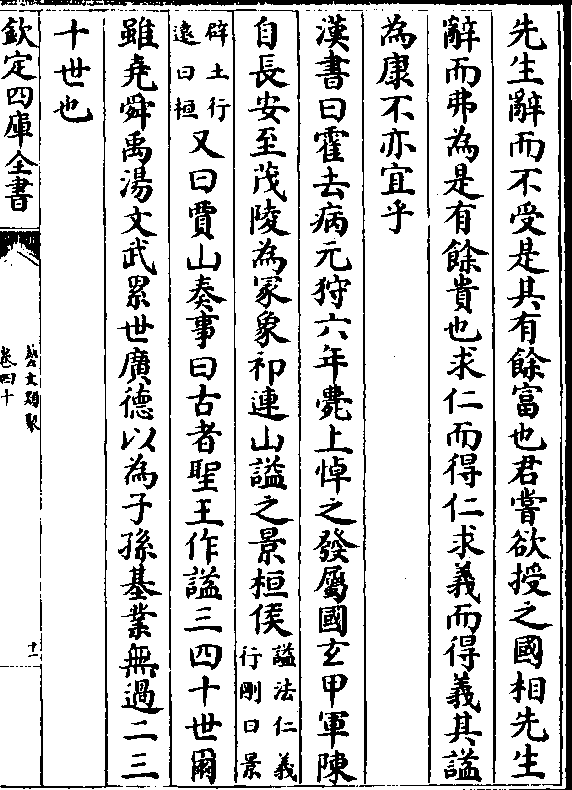 先生辭而不受是其有餘富也君嘗欲授之國相先生
辭而弗為是有餘貴也求仁而得仁求義而得義其謚
為康不亦宜乎
漢書曰霍去病元狩六年薨上悼之發屬國玄甲軍陳
自長安至茂陵為冢象祁連山謚之景桓侯謚法仁義行剛曰景
辟土行逺曰桓又曰賈山奏事曰古者聖王作謚三四十世爾
雖堯舜禹湯文武累世廣德以為子孫基業無過二三
十世也
欽定四庫全書
藝文類聚
卷四十
十一